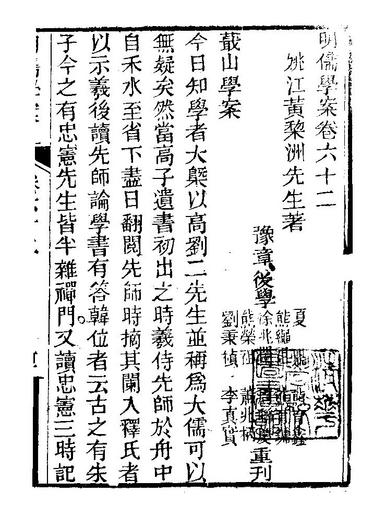 明儒學案卷六十二
姚江黃棃洲先生著
豫章後學
夏
熊
徐兆
熊榮祖
蕭兆柄
劉秉楨
李真實
重刊
蕺山學案
今日知學者大槩以高劉二先生並稱爲大儒可以
無疑矣然當高子遺書初出之時羲侍先師於舟中
自禾水至省下盡日翻閱先師時摘其闌入釋氏者
以示羲後讀先師論學書有答韓位者云古之有朱
子今之有忠憲先生皆半雜禪門又讀忠憲三時記